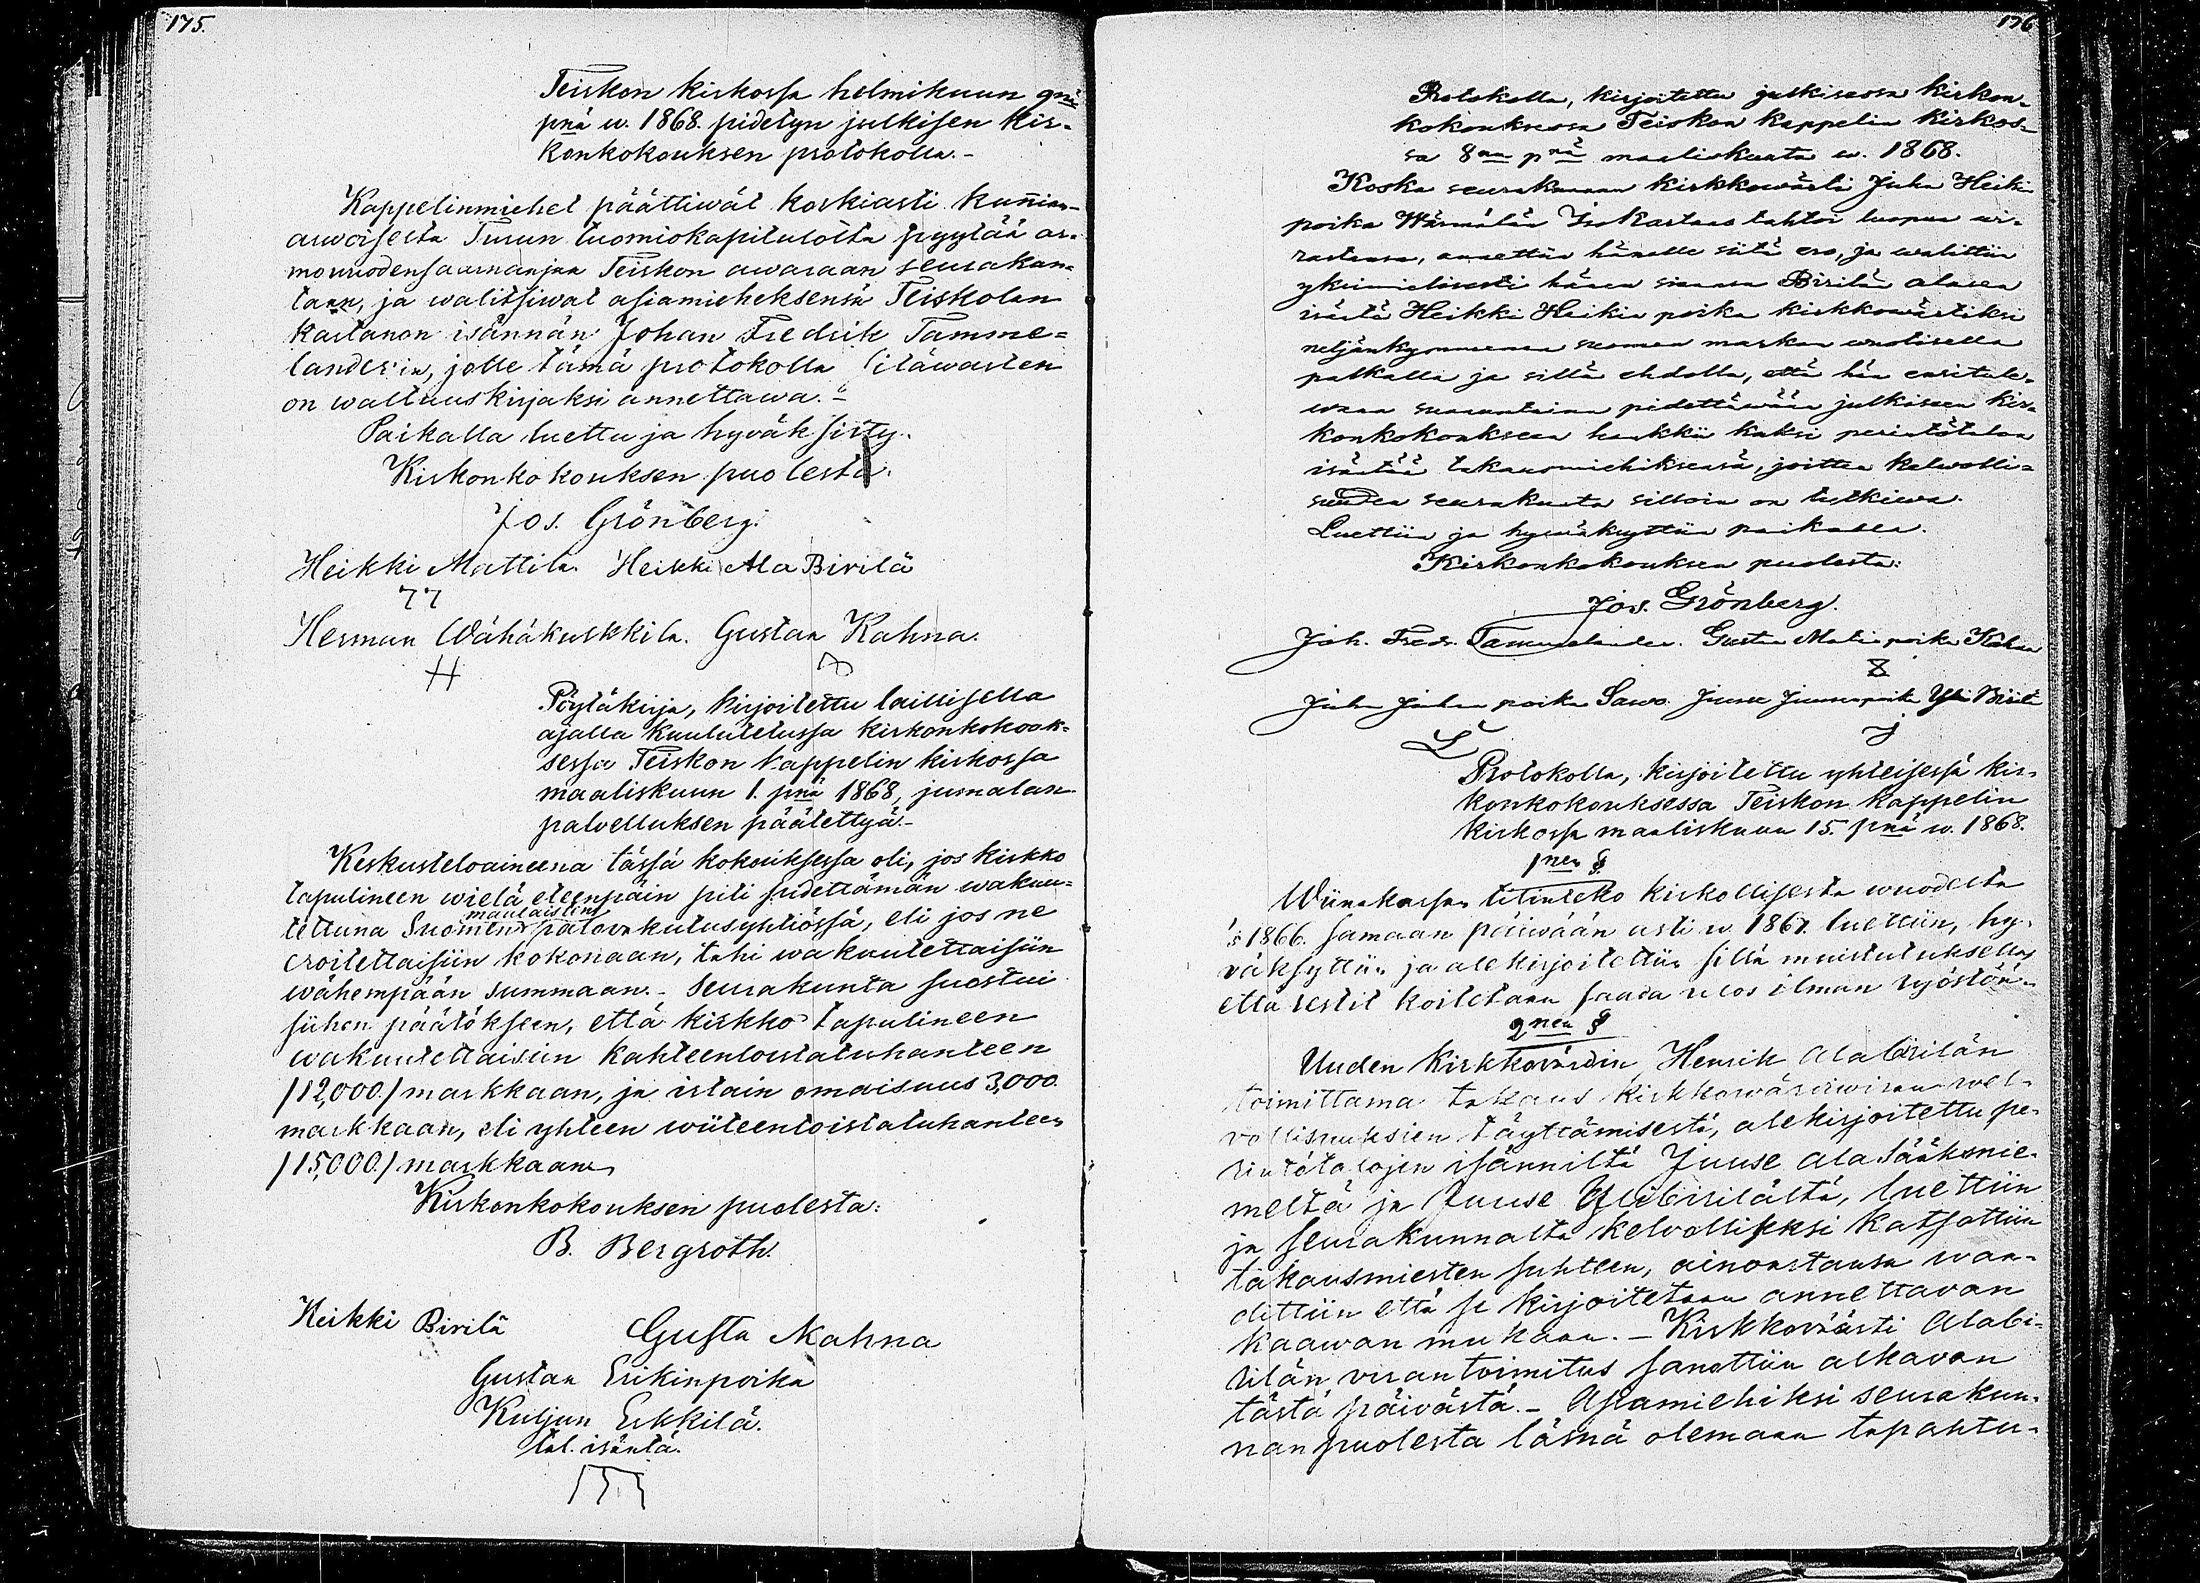 175.
Teiskon kirkossa helmikuun 9nä
pnä w. 1868. pidetyn julkisen kir-
konkokouksen protokolla.-
Kappelinmiehet päättiwät korkiasti kunnian-
arwoiselta Turun tuomiokapitulolta pyytää ar-
mowuodensaarnaajaa Teiskon awaraan seurakun-
taan, ja walitsiwat asiamieheksensä Teiskolan
kartanon isännän Johan Fredrik Tamme-
lander'in, jolle tämä protokolla sitäwarten
on waltuuskirjaksi annettawa.-
Paikalla luettu ja hyväksitty.
Kirkonkokouksen puolesta:
Jos. Grönberg.
Heikki Mattila. Heikki Ala Birilä
Herman Wähäkurkkila. Gustaa Kahna.
Pöytäkirja, kirjoitettu laillisella
ajalla kuulutetussa kirkonkokouk-
sessa Teiskon kappelin kirkossa
maaliskuun 1. pnä 1868, jumalan
palvelluksen päätettyä.-
Keskusteloaineena tässä kokouksessa oli, jos kirkko
tapulineen wielä eteenpäin piti pidettämän wakuu-
maalaisten
tettuna Suomen palovakutusyhtiössä, eli jos ne
eroitettaisiin kokonaan, tahi wakuutettaisiin
wähempään summaan.- Seurakunta suostui
siihen päätökseen, että kirkko tapulineen
wakuutettaisiin kahteentoistatuhanteen
/12,000./ markkaan, ja irtain omaisuus 3,000.
markkaan, eli yhteen wiiteentoistatuhanteen
/15,000./ markkaan.
Kirkonkokouksen puolesta:
B. Bergroth.
Heikki Birilä Gusta Kahna
Gustaa Erikinpoika
Kuljun Erkkilä.
tal. isäntä.
176
Protokolla, kirjoitettu julkisessa kirkon-
kokouksessa Teiskon kappelin kirkos-
sa 8na pnä maaliskuuta w. 1868.
Koska seurakunnan kirkkowärti Juha Heikin
poika Wärmälän Iso Kartano tahtoi luopua wi-
rastansa, annettiin hänelle siitä ero, ja walittiin
yksimielisesti hänen siaansa Birilän alasen
isäntä Heikki Heikin poika kirkkowärtiksi
neljänkymmenen suomen markan wuotisella
palkalla ja sillä ehdolla, että hän ensitule-
wana sunnuntaina pidettäwään julkiseen kir-
konkokoukseen hankkii kaksi perintötalon
isäntää takausmiehiksensä, joitten kelwolli-
suuden seurakunta silloin on tutkiwa.
Luettiin ja hywäksyttiin paikalla.
Kirkonkokouksen puolesta:
Jos. Grönberg.
Joh. Fredr. Tammelander. Gusta Matin poika Kahna
Juha Juhan poika Sawo. Juuse Juusenpoika Yli Birilä
Protokolla, kirjoitettu yhteisessä kir-
konkokouksessa Teiskon kappelin
kirkossa maaliskuun 15. pnä w. 1868.
1nen §
Wiinakassan tilinteko kirkollisesta wuodelta
1866. samaan päiwään asti w. 1867. luettiin, hy-
väksyttiin ja alekirjoitettiin sillä muistutuksella,
että restit koitetaan saada ulos ilman ryöstön.
2nen §
Uuden kirkkovärdin Henrik Alabirilän
toimittama takaus kirkkowärdiwiran wel-
vollisuuksien täyttämisestä, alekirjoitettu pe-
rintötalojen isänniltä Juuse Ala Sääksnie-
meltä ja Juuse Ylibirilältä, luettiin
ja seurakunnalta kelvolliseksi katsottiin
takausmiesten suhteen, ainoastansa waa-
dittiin että se kirjoitetaan annettavan
kaawan mukaan.- Kirkkovärti Alabi-
rilän virantoimitus sanottiin alkavan
tästä päivästä.- Asiamiehiksi seurakun-
nan puolesta läsnä olemaan tapahtu-